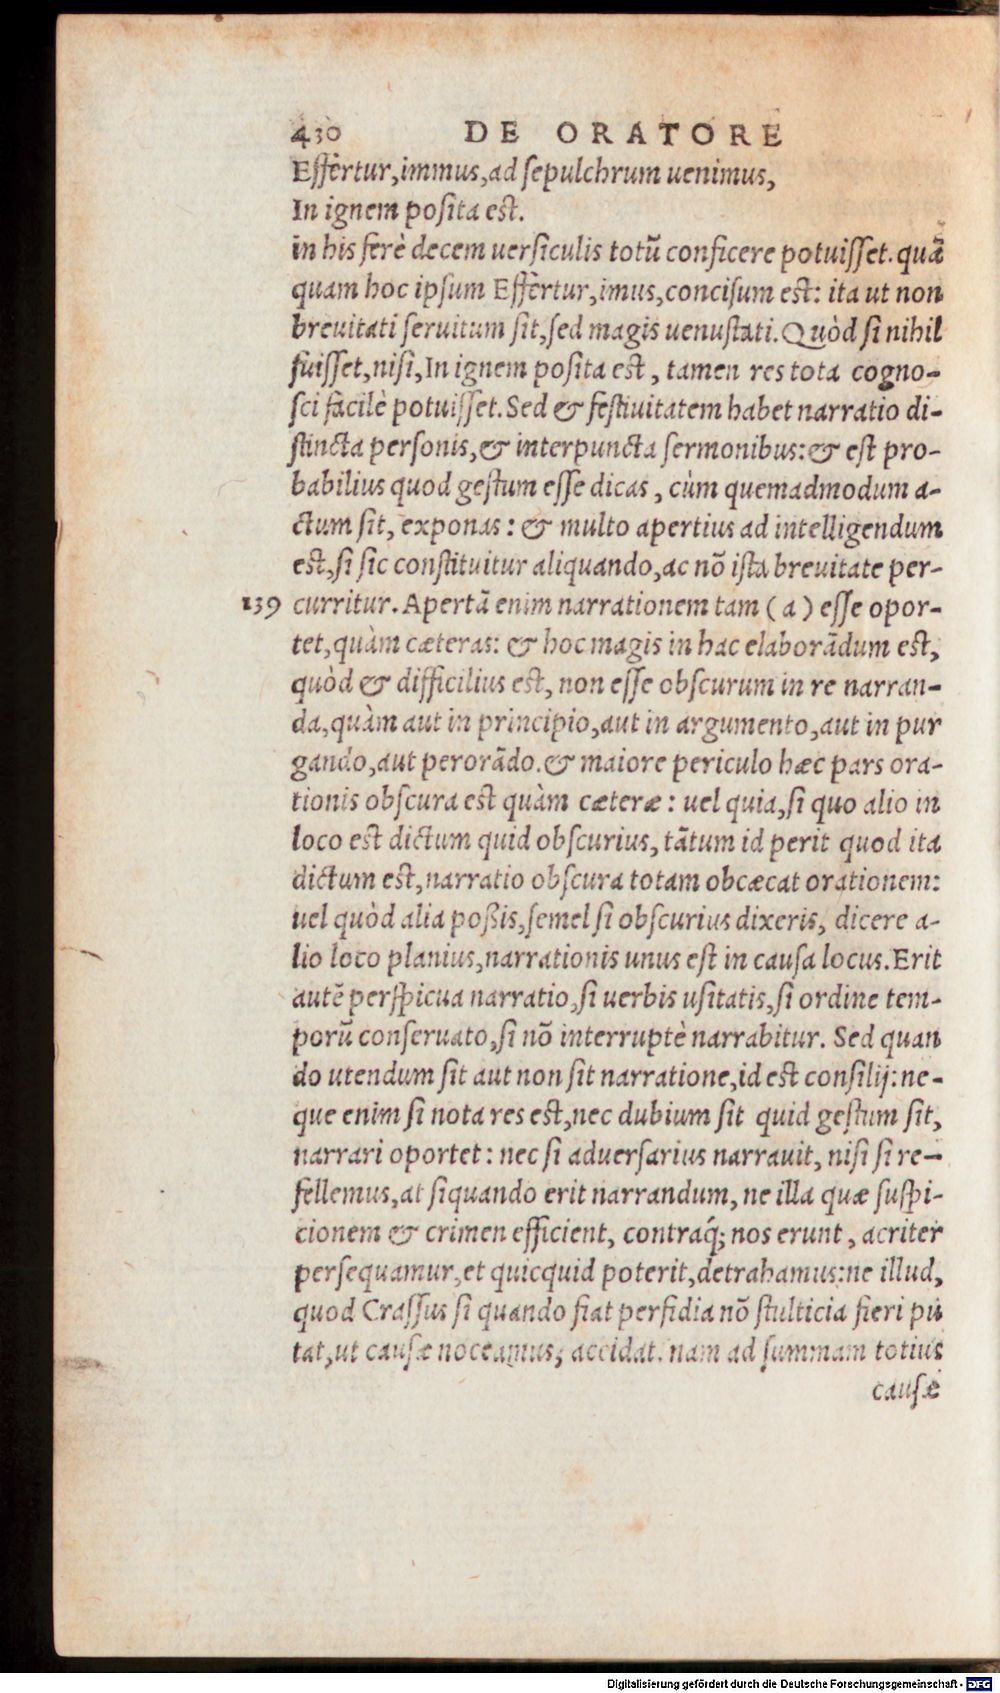 430 DE ORATORE
Effertur, immus, ad sepulchrum uenimus,
In ignem posita est.
in his ferè decem uersiculis totũ conficere potuisset. quã
quam hoc ipsum Effertur, imus, concisum est: ita ut non
breuitati seruitum sit, sed magis uenustati. Quòd si nihil
fuisset, nisi, In ignem posita est, tamen res tota cogno-
sci facilè potuisset. Sed & festiuitatem habet narratio di-
stincta personis, & interpuncta sermonibus: & est pro-
babilius quod gestum esse dicas, cùm quemadmodum a-
ctum sit, exponas: & multo apertius ad intelligendum
est, si sic constituitur aliquando, ac nõ ista breuitate per-
139 curritur. Apertã enim narrationem tam (a) esse opor-
tet, quàm cæteras: & hoc magis in hac elaborãdum est,
quòd & difficilius est, non esse obscurum in re narran-
da, quàm aut in principio, aut in argumento, aut in pur
gando, aut perorãdo. & maiore periculo hæc pars ora-
tionis obscura est quàm cæteræ: uel quia, si quo alio in
loco est dictum quid obscurius, tãtum id perit quod ita
dictum est, narratio obscura totam obcæcat orationem:
uel quòd alia poßis, semel si obscurius dixeris, dicere a-
lio loco planius, narrationis unus est in causa locus. Erit
autẽ perspicua narratio, si uerbis usitatis, si ordine tem-
porũ conseruato, si nõ interruptè narrabitur. Sed quan
do utendum sit aut non sit narratione, id est consilij: ne-
que enim si nota res est, nec dubium sit quid gestum sit,
narrari oportet: nec si aduersarius narrauit, nisi si re-
fellemus, at siquando erit narrandum, ne illa quæ suspi-
cionem & crimen efficient, contraq́; nos erunt, acriter
persequamur, et quicquid poterit, detrahamus: ne illud,
quod Crassus si quando fiat perfidia nõ stulticia fieri pu
tat, ut causæ noceamus, accidat. nam ad summam totius
causæ
Digitalisierung gefördert durch die Deutsche Forschungsgemeinschaft - DFG